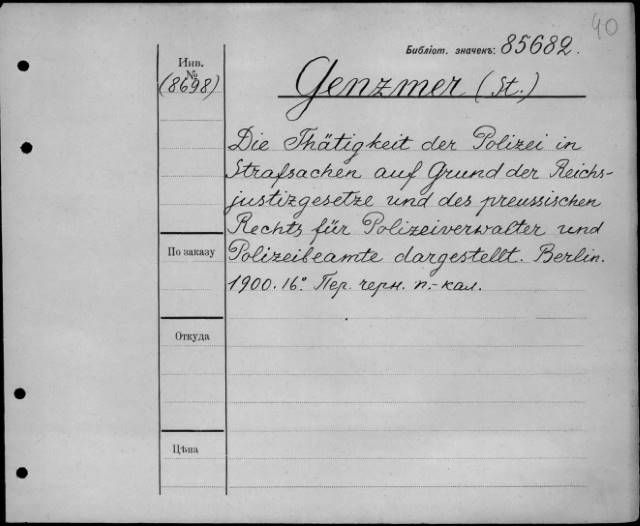 40
Библіот. значекъ: 85682.
Инв.
№
(8698)
Genzmer (St.)
Die Thätigkeit der Polizei in
Strafsachen auf Grund der Reichs-
justizgesetze und des preussischen
Rechts für Polizeiverwalter und
Polizeibeamte dargestellt. Berlin.
1900. 16°. Пер. черн. п.-кал.
По заказу
Откуда
Цѣна